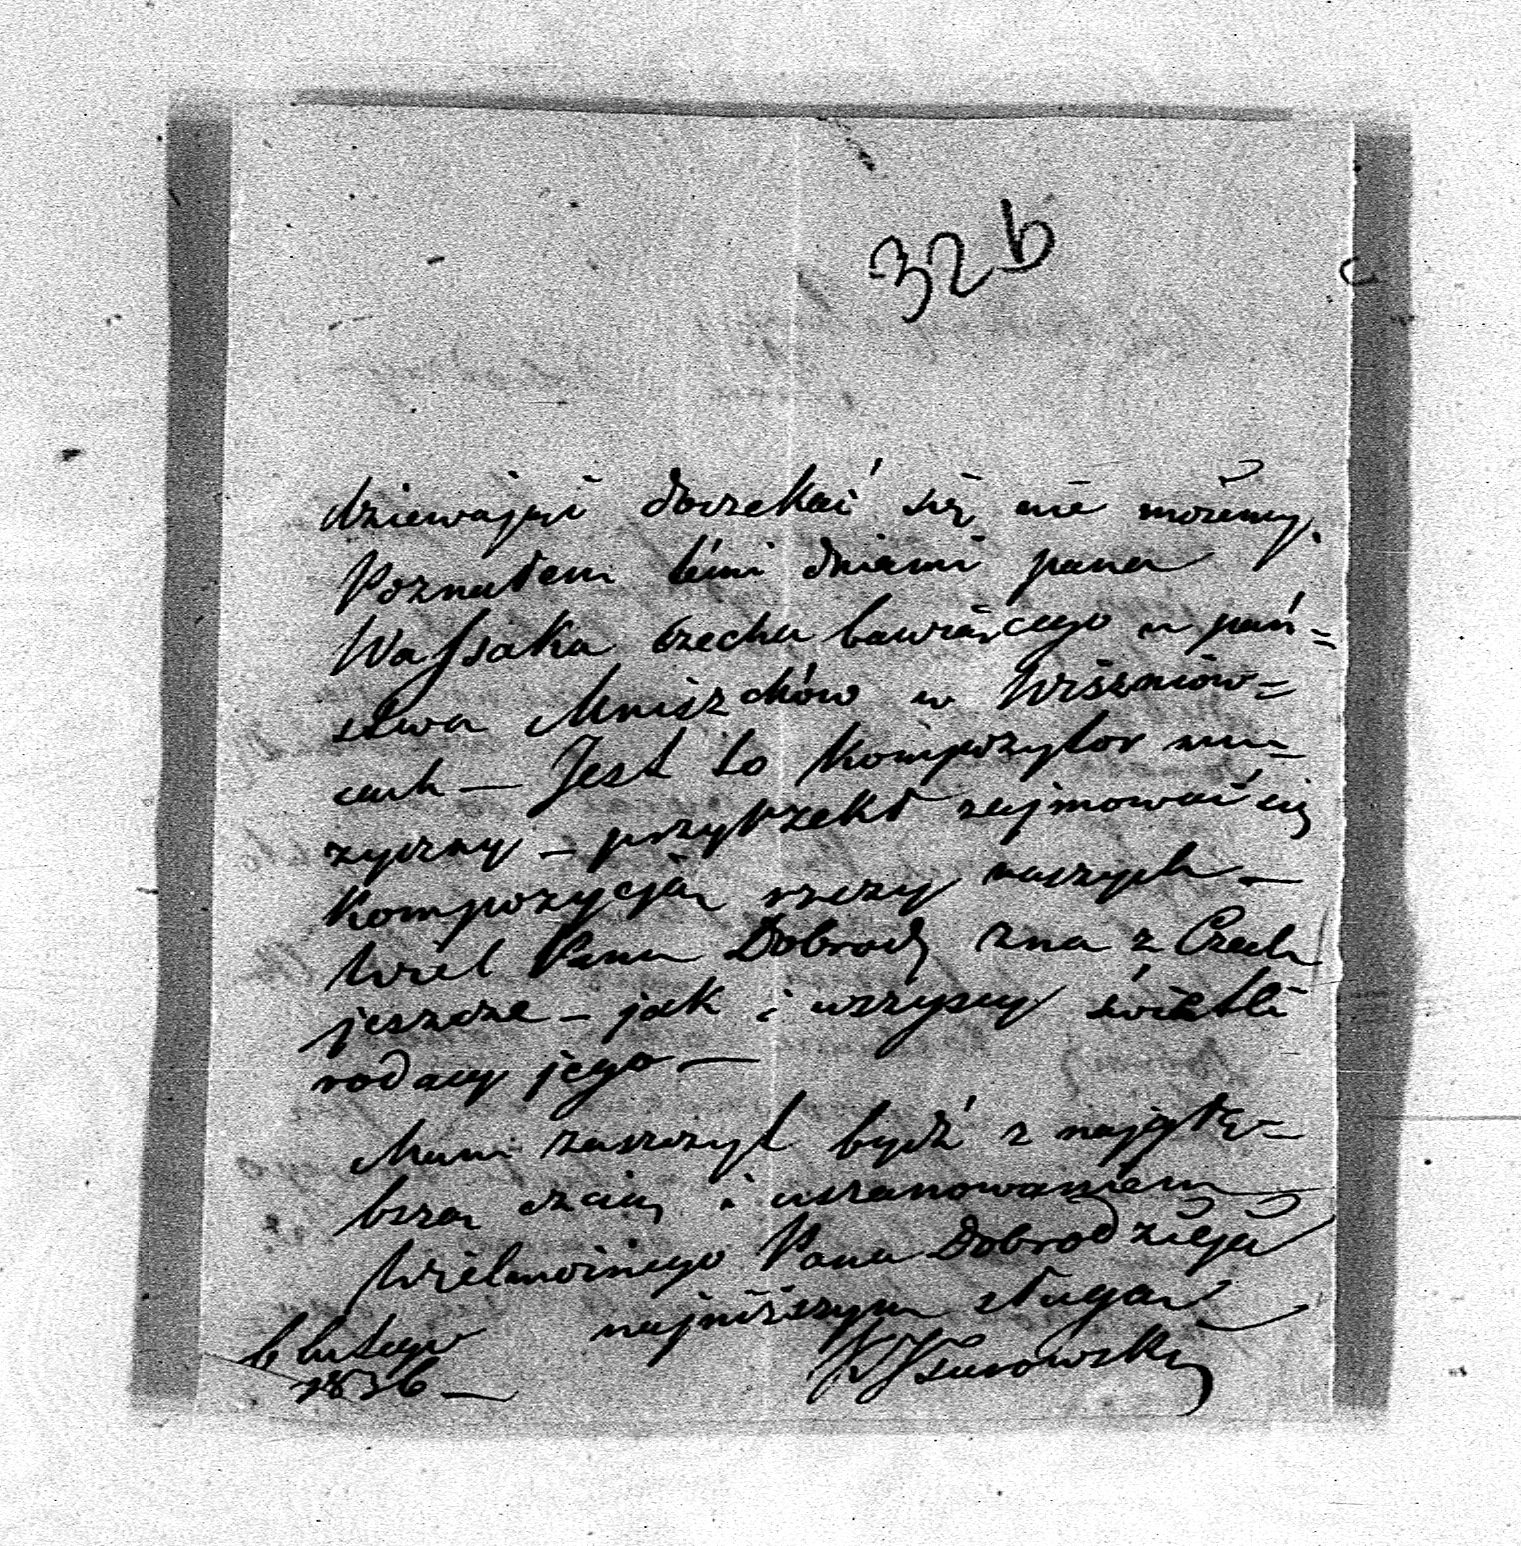 32 b
dziewający doczekać się nie możemy.
Poznałem temi dniami pana
Wassaka Czecha bawiącego u pań=
stwa Mniszchów w Wiśniow=
cach — Jest to kompozytor mu=
zyczny — przyrzekł zajmować się
kompozycją rzeczy naszych —
Wiel Pana Dobrodz zna z Czech
jeszcze — jak i wszyscy światli
rodacy jego —
Mam zaszczyt bydź z najgłę=
bszą czcią i uszanowaniem
Wielmożnego Pana Dobrodzieja
najniższym sługą
6 Lutego
1836 —